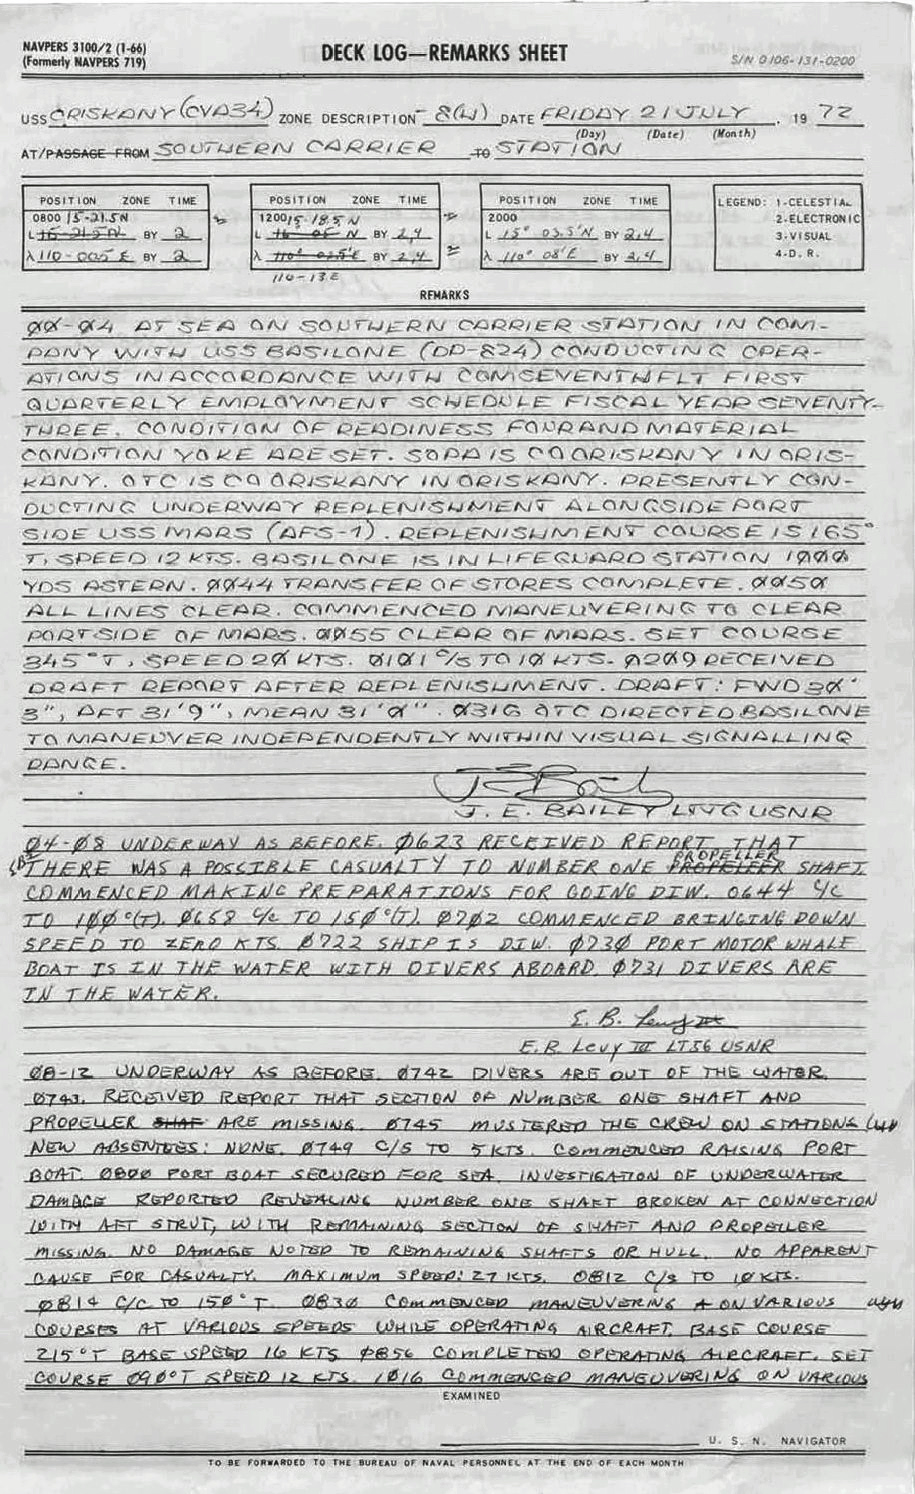 NAVPERS 3100/2 (1-66)
(Formerly NAVPERS 719)
DECK LOG—REMARKS SHEET
S/N 0106-131-0200
USS ORISKANY (CVA34) ZONE DESCRIPTION -8(H) DATE FRIDAY 21 JULY, 19 72
(Day) (Date) (Month)
AT/PASSAGE FROM SOUTHERN CARRIER TO STATION
POSITION ZONE TIME
0800 15-21.5N
L 15-21.5N BY 2
λ 110-00.5 E BY 2
POSITION ZONE TIME
1200 15-18.5 N
L BY 2,4
λ BY 2,4
110-13E
POSITION ZONE TIME
2000
L 15° 03.5'N BY 2,4
λ 110° 08'E BY 2,4
LEGEND: 1-CELESTIAL
2-ELECTRONIC
3-VISUAL
4-D. R.
REMARKS
00-04 AT SEA ON SOUTHERN CARRIER STATION IN COM-
PANY WITH USS BASILONE (DD-824) CONDUCTING OPER-
ATIONS IN ACCORDANCE WITH COMSEVENTHFLT FIRST
QUARTERLY EMPLOYMENT SCHEDULE FISCAL YEAR SEVENTY-
THREE. CONDITION OF READINESS FOUR AND MATERIAL
CONDITION YOKE ARE SET. SOPA IS CO ORISKANY IN ORIS-
KANY. OTC IS CO ORISKANY IN ORISKANY. PRESENTLY CON-
DUCTING UNDERWAY REPLENISHMENT ALONGSIDE PORT
SIDE USS MARS (AFS-1). REPLENISHMENT COURSE IS 165°
T, SPEED 12 KTS. BASILONE IS IN LIFEGUARD STATION 1000
YDS ASTERN. 0044 TRANSFER OF STORES COMPLETE. 0050
ALL LINES CLEAR. COMMENCED MANEUVERING TO CLEAR
PORT SIDE OF MARS. 0055 CLEAR OF MARS. SET COURSE
345°T, SPEED 20 KTS. 0101 C/S TO 10 KTS. 0209 RECEIVED
DRAFT REPORT AFTER REPLENISHMENT. DRAFT: FWD 30'
3", AFT 31'9", MEAN 31'0". 0316 OTC DIRECTED BASILONE
TO MANEUVER INDEPENDENTLY WITHIN VISUAL SIGNALLING
RANGE.
J. E. BAILEY LTJG USNR
04-08 UNDERWAY AS BEFORE. 0623 RECEIVED REPORT THAT
THERE WAS A POSSIBLE CASUALTY TO NUMBER ONE PROPELLER PROPELLER SHAFT.
COMMENCED MAKING PREPARATIONS FOR GOING DIW. 0644 C/C
TO 100°(T). 0658 C/C TO 150°(T). 0702 COMMENCED BRINGING DOWN
SPEED TO ZERO KTS. 0722 SHIP IS DIW. 0730 PORT MOTOR WHALE
BOAT IS IN THE WATER WITH DIVERS ABOARD. 0731 DIVERS ARE
IN THE WATER.
E. B. Levy III
E. B. Levy III LTJG USNR
08-12 UNDERWAY AS BEFORE. 0742 DIVERS ARE OUT OF THE WATER.
0743. RECEIVED REPORT THAT SECTION OF NUMBER ONE SHAFT AND
PROPELLER SHAF ARE MISSING. 0745 MUSTERED THE CREW ON STATIONS
NEW ABSENTEES: NONE. 0749 C/S TO 5 KTS. COMMENCED RAISING PORT
BOAT. 0800 PORT BOAT SECURED FOR SEA. INVESTIGATION OF UNDERWATER
DAMAGE REPORTED REVEALING NUMBER ONE SHAFT BROKEN AT CONNECTION
WITH AFT STRUT, WITH REMAINING SECTION OF SHAFT AND PROPELLER
MISSING. NO DAMAGE NOTED TO REMAINING SHAFTS OR HULL. NO APPARENT
CAUSE FOR CASUALTY. MAXIMUM SPEED: 27 KTS. 0812 C/S TO 10 KTS.
0814 C/C TO 150°T. 0830 COMMENCED MANEUVERING ON VARIOUS
COURSES AT VARIOUS SPEEDS WHILE OPERATING AIRCRAFT. BASE COURSE
215°T BASE SPEED 16 KTS 0856 COMPLETED OPERATING AIRCRAFT. SET
COURSE 090°T SPEED 12 KTS. 1016 COMMENCED MANEUVERING ON VARIOUS
EXAMINED
U. S. N. NAVIGATOR
TO BE FORWARDED TO THE BUREAU OF NAVAL PERSONNEL AT THE END OF EACH MONTH